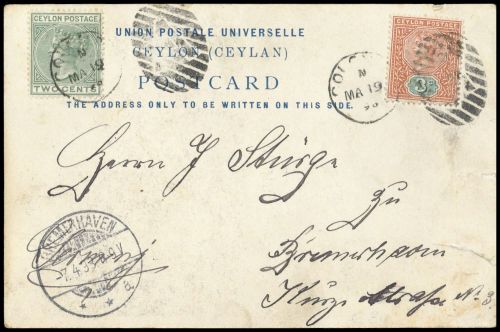 CEYLON POSTAGE
TWO CENTS
CEYLON POSTAGE
UNION POSTALE UNIVERSELLE
CEYLON (CEYLAN)
POSTCARD
THE ADDRESS ONLY TO BE WRITTEN ON THIS SIDE.
N
MA 19
COLO
N
MA 19
98
Herrn J Stürge
zu
Bremerhaven
Kurze Straße No 3
BREMERHAVEN
7.4.98